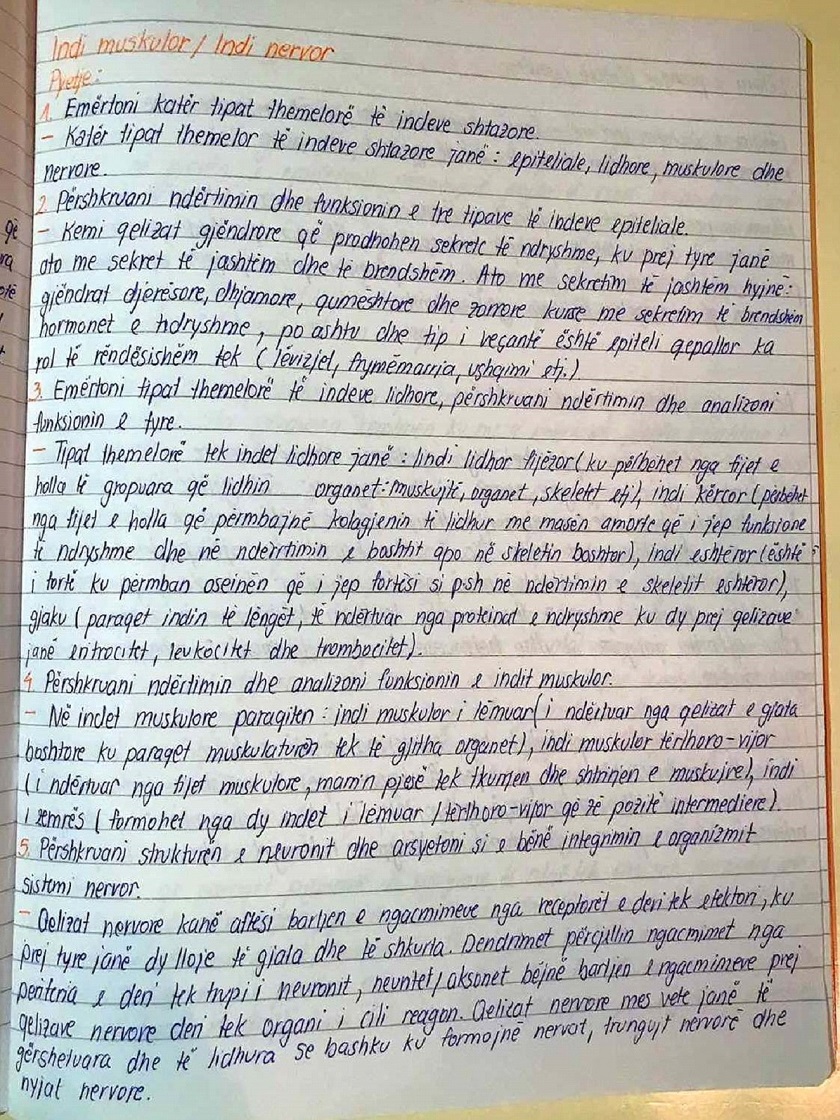 Indi muskulor / Indi nervor
Pyetje:
1. Emërtoni katër tipat themelorë të indeve shtazore.
- Katër tipat themelor të indeve shtazore janë: epiteliale, lidhore, muskulore dhe
nervore.
2. Përshkruani ndërtimin dhe funksionin e tre tipave të indeve epiteliale.
- Kemi qelizat gjëndrore që prodhohen sekrete të ndryshme, ku prej tyre janë
ato me sekret të jashtëm dhe të brendshëm. Ato me sekretim të jashtëm hyjnë:
gjëndrat djersore, dhjamore, qumështore dhe zorrore kurse me sekretim të brendshëm
hormonet e ndryshme, po ashtu dhe tip i veçantë është epiteli qepallor ka
rol të rëndësishëm tek (lëvizjet, frymëmarrja, ushqimi etj.)
3. Emërtoni tipat themelorë të indeve lidhore, përshkruani ndërtimin dhe analizoni
funksionin e tyre.
- Tipat themelorë tek indet lidhore janë: Iindi lidhor fijëzor (ku përbëhet nga fijet e
holla të grupuara që lidhin organet: muskujtë, organet, skeletet etj), indi kërcor (përbëhet
nga fijet e holla që përmbajnë kolagjenin të lidhur me masën amorfe që i jep funksione
të ndryshme dhe në ndërrtimin e boshtit apo në skeletin boshtor), indi eshtëror (është
i fortë ku përmban oseinën që i jep fortësi si p.sh në ndërtimin e skeletit eshtëror),
gjaku (paraqet indin të lëngët, të ndërtuar nga proteinat e ndryshme ku dy prej qelizave
janë eritrocitet, leukocitet dhe trombocitet).
4. Përshkruani ndërtimin dhe analizoni funksionin e indit muskulor.
- Në indet muskulore paraqiten: indi muskulor i lëmuar (i ndërtuar nga qelizat e gjata
boshtore ku paraqet muskulaturën tek të gjitha organet), indi muskulor tërthoro-vijor
(i ndërtuar nga fijet muskulore, marrin pjesë tek tkurrjen dhe shtrirjen e muskujve), indi
i zemrës (formohet nga dy indet i lëmuar / tërthoro-vijor që zë pozitë intermediere).
5. Përshkruani strukturën e neuronit dhe arsyetoni si e bënë integrimin e organizmit
sistemi nervor.
- Qelizat nervore kanë aftësi bartjen e ngacmimeve nga receptorët e deri tek efektori, ku
prej tyre janë dy lloje të gjata dhe të shkurta. Dendrimet përcjllin ngacmimet nga
periferia e deri tek trupi i neuronit, neuritet/aksonet bëjnë bartjen e ngacmimeve prej
qelizave nervore deri tek organi i cili reagon. Qelizat nervore mes vete janë të
gërshetuara dhe të lidhura se bashku ku formojnë nervat, trungujt nervorë dhe
nyjat nervore.